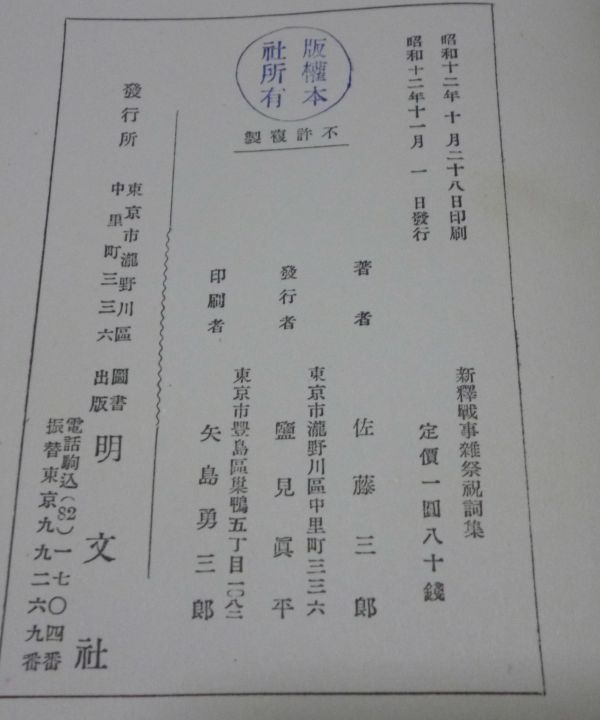 昭和十二年十月二十八日印刷
昭和十二年十一月一日發行
版權本
社所有
不許複製
新釋戰事雜祭祝詞集
定價一圓八十錢
著者 佐藤三郎
東京市瀧野川區中里町三三六
發行者 鹽見眞平
東京市豐島區巢鴨五丁目一〇八二
印刷者 矢島勇三郎
發行所
東京市瀧野川區
中里町三三六
圖書
出版
明文社
電話駒込(82)一七〇四番
振替東京九九二六九番